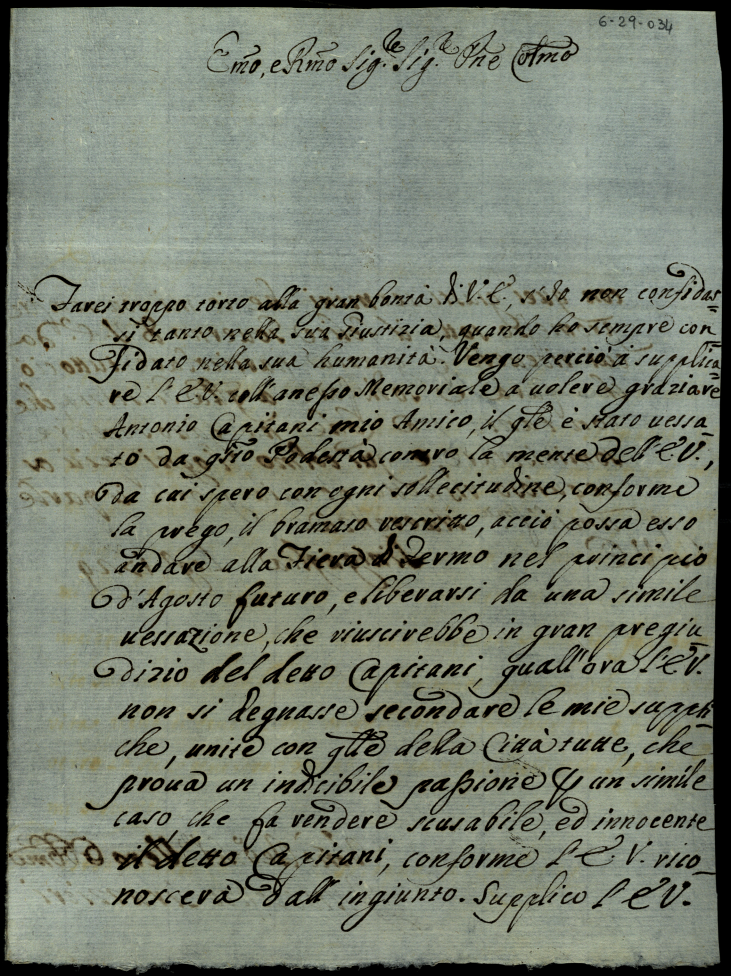 6-29-034
Emo, e Rmo Sig.re Sig.re Pne Colmo
Farei troppo torto alla gran bontà di V. E., s'Io non confidas=
si tanto nella sua Giustizia, quando ho sempre con
fidato nella sua humanità. Vengo perciò à supplica=
re l'E V. coll'anesso Memoriale a volere graziare
Antonio Capitani mio Amico, il qle è stato vessa=
to da qsto Podestà contro la mente dell'E V.,
da cui spero con ogni sollecitudine, conforme
la prego, il bramato rescritto, acciò possa esso
andare alla Fiera di Fermo nel principio
d'Agosto futuro, e liberarsi da una simile
vessazione, che riuscirebbe in gran pregiu
dizio del detto Capitani, quall'ora l'E V.
non si degnasse secondare le mie suppli=
che, unite con qlle della Città tutta, che
prova un indicibile passione p un simile
caso, che fa rendere scusabile, ed innocente
il detto Capitani, conforme l'E V. rico=
noscerà dall'ingiunto. Supplico l'E V.